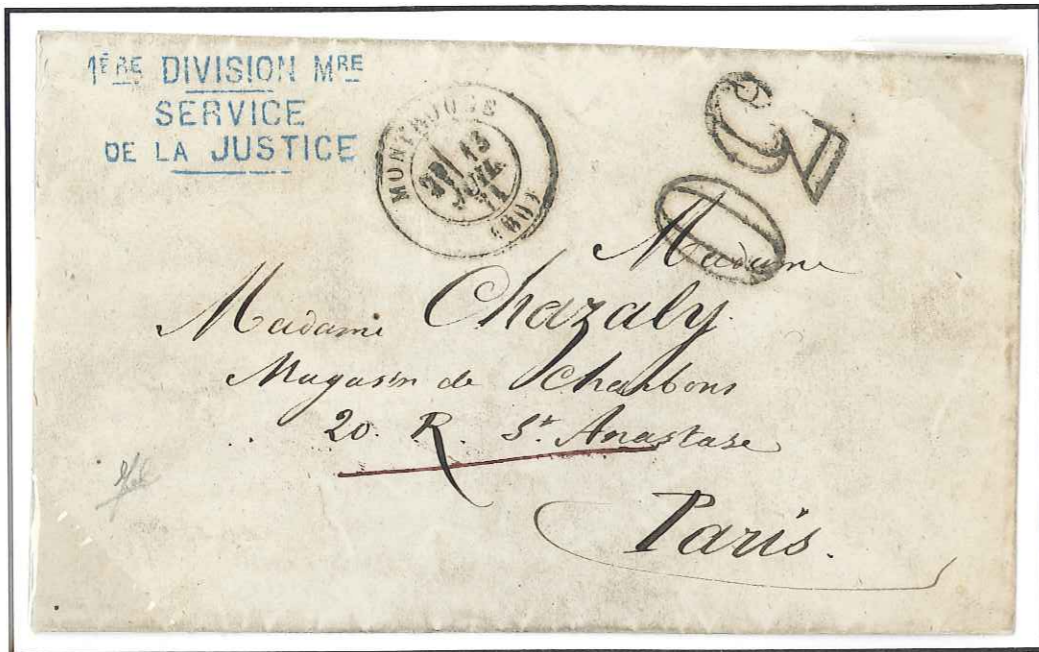 1ÈRE DIVISION MRE
SERVICE
DE LA JUSTICE
MONTROUGE
13
JUIL
71
(60)
30
Madame
Madame Chazaly.
Magasin de Charbons
20. R. St. Anastase
Paris.